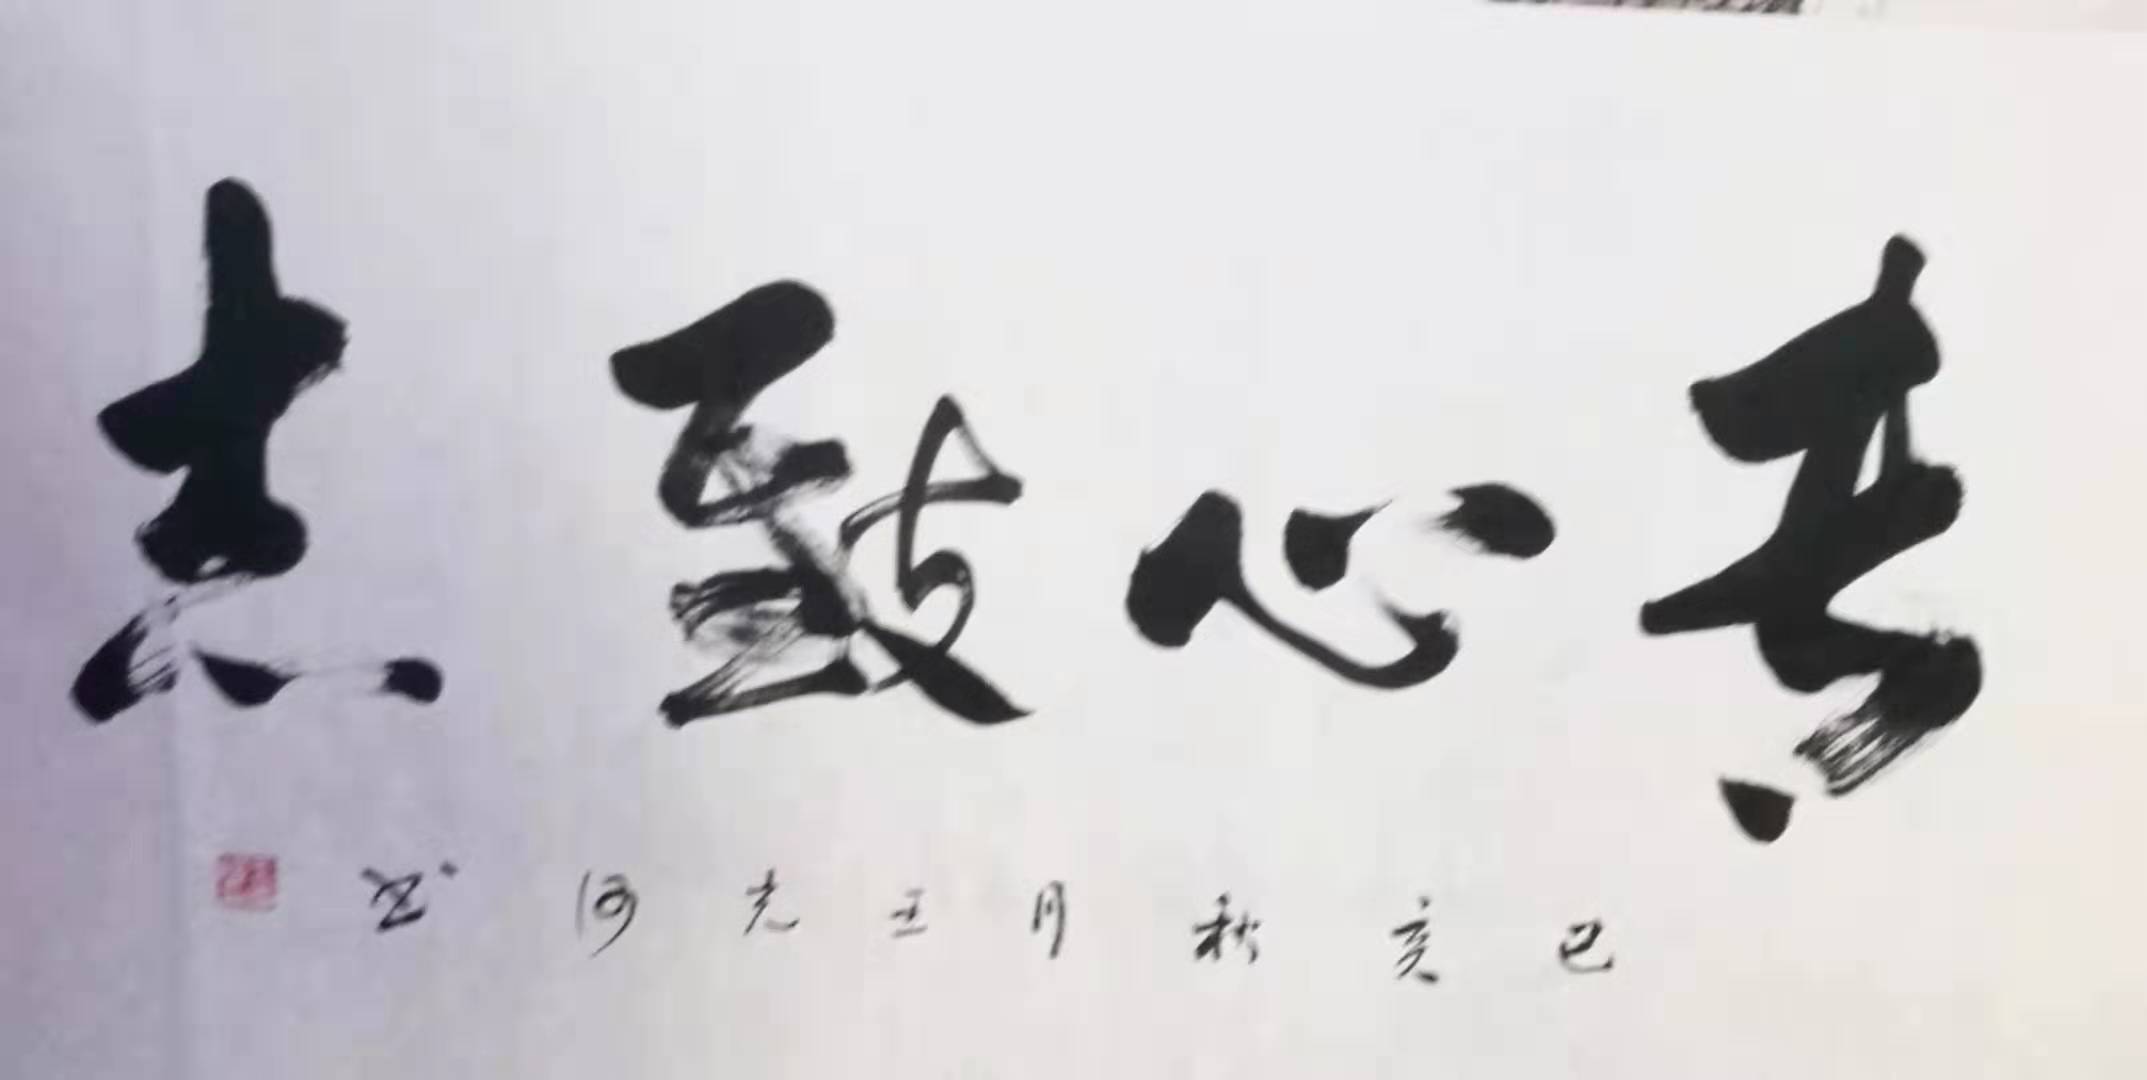 专心致志
己亥秋月王光河书